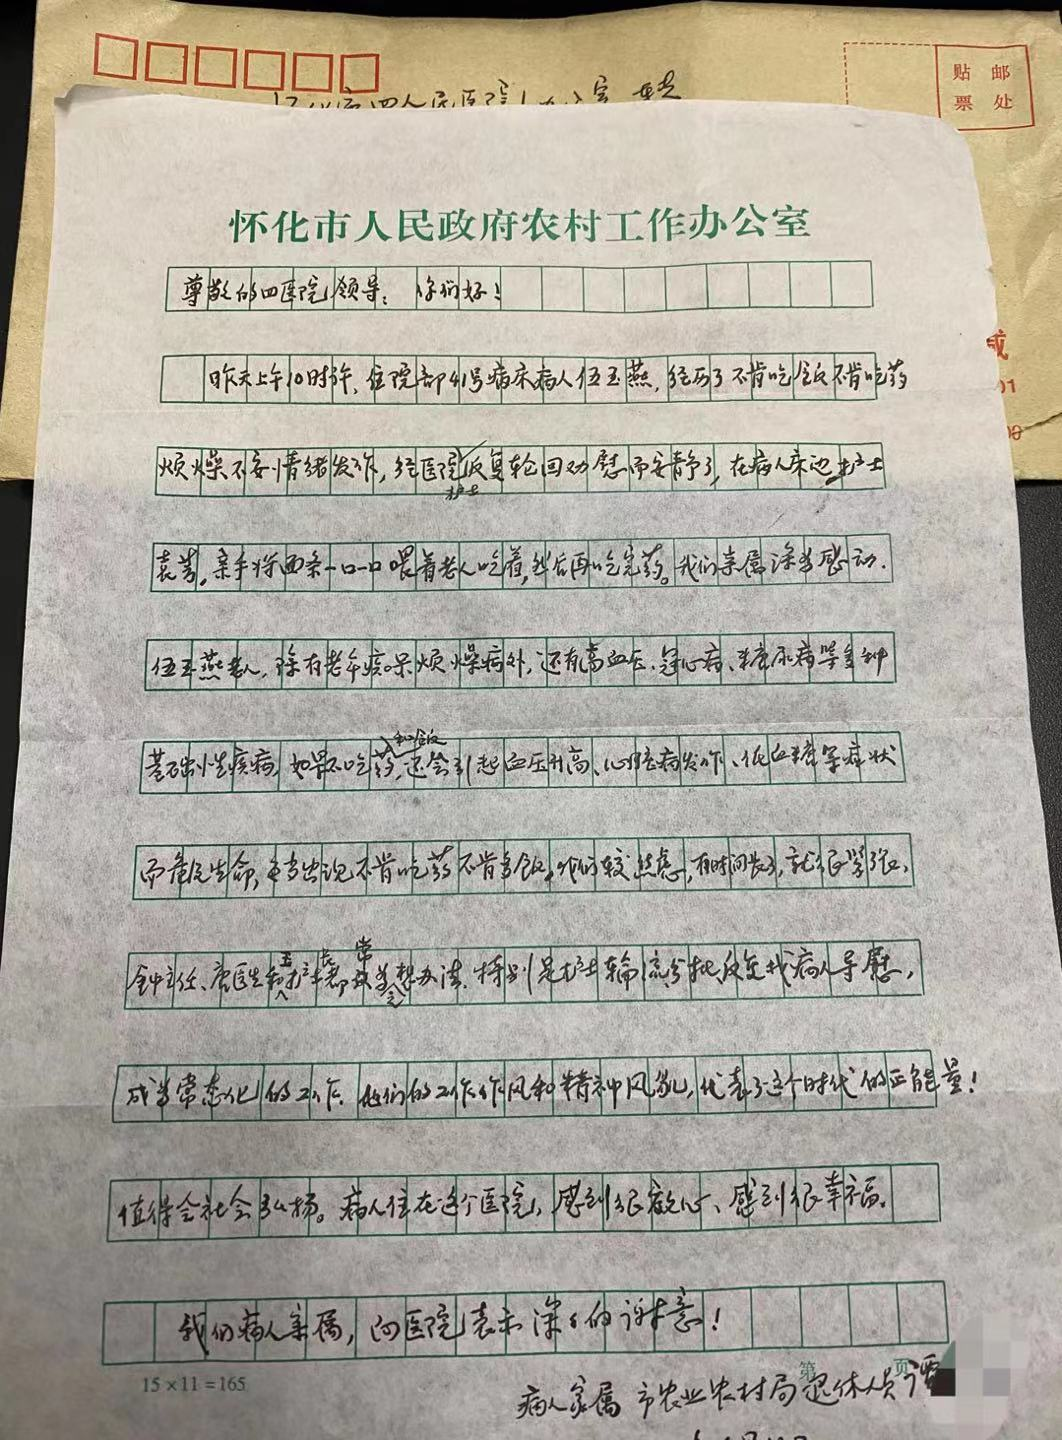 贴 邮
票 处
市四人民医院办公室 转
怀化市人民政府农村工作办公室
尊敬的四医院领导：你们好！
昨天上午10时许，住院部41号病床病人伍玉燕，经历了不肯吃饭不肯吃药
烦燥不安情绪发作，经医院护士反复轮回劝慰而安静了，在病人床边，护士
袁芳，亲手将面条一口一口喂着老人吃着，然后再吃完药。我们亲属深为感动.
伍玉燕老人，除有老年痴呆烦燥病外，还有高血压、冠心病、糖尿病等多种
基础性疾病，如果不吃药和饭，还会引起血压升高、心脏病发作、低血糖等症状
而危及生命，每当出现不肯吃药不肯吃饭，我们较焦虑，有时间长了，就很紧张，
钟主任、唐医生和护士长都常想办法，特别是护士轮流分批反复找病人导慰，
成为常态化的工作，他们的工作作风和精神风貌，代表了这个时代的正能量！
值得全社会弘扬。病人住在这个医院，感到很放心、感到很幸福。
我们病人亲属，向医院表示深深的谢意！
15×11=165
第 页
病人家属 市农业农村局退休人员 谭